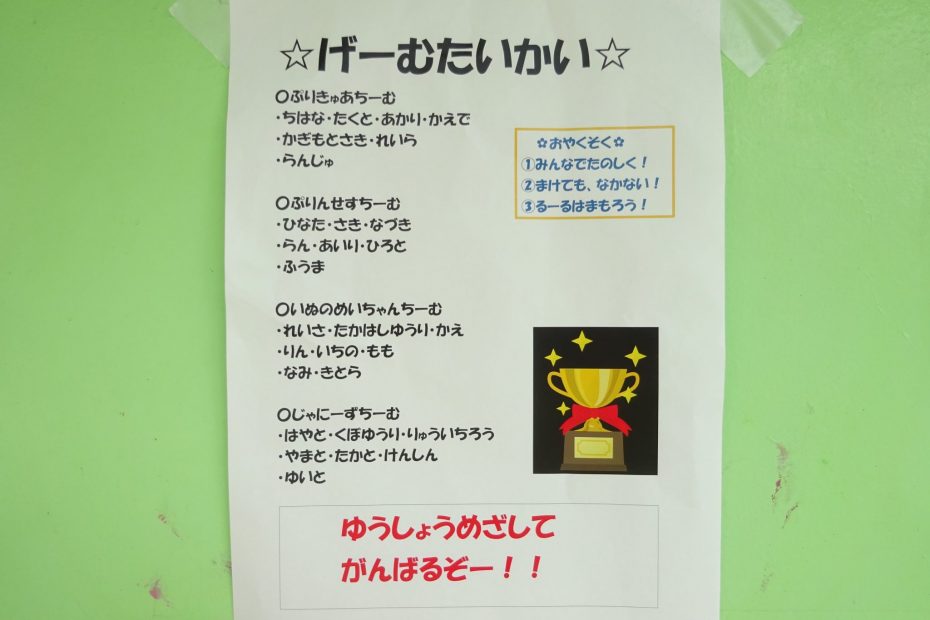 ☆げーむたいかい☆
〇ぷりきゅあちーむ
・ちはな・たくと・あかり・かえで
・かぎもとさき・れいら
・らんじゅ
〇ぷりんせすちーむ
・ひなた・さき・なづき
・らん・あいり・ひろと
・ふうま
〇いぬのめいちゃんちーむ
・れいさ・たかはしゆうり・かえ
・りん・いちの・もも
・なみ・きとら
〇じゃにーずちーむ
・はやと・くぼゆうり・りゅういちろう
・やまと・たかと・けんしん
・ゆいと
✿おやくそく✿
①みんなでたのしく！
②まけても、なかない！
③るーるはまもろう！
ゆうしょうめざして
がんばるぞー！！